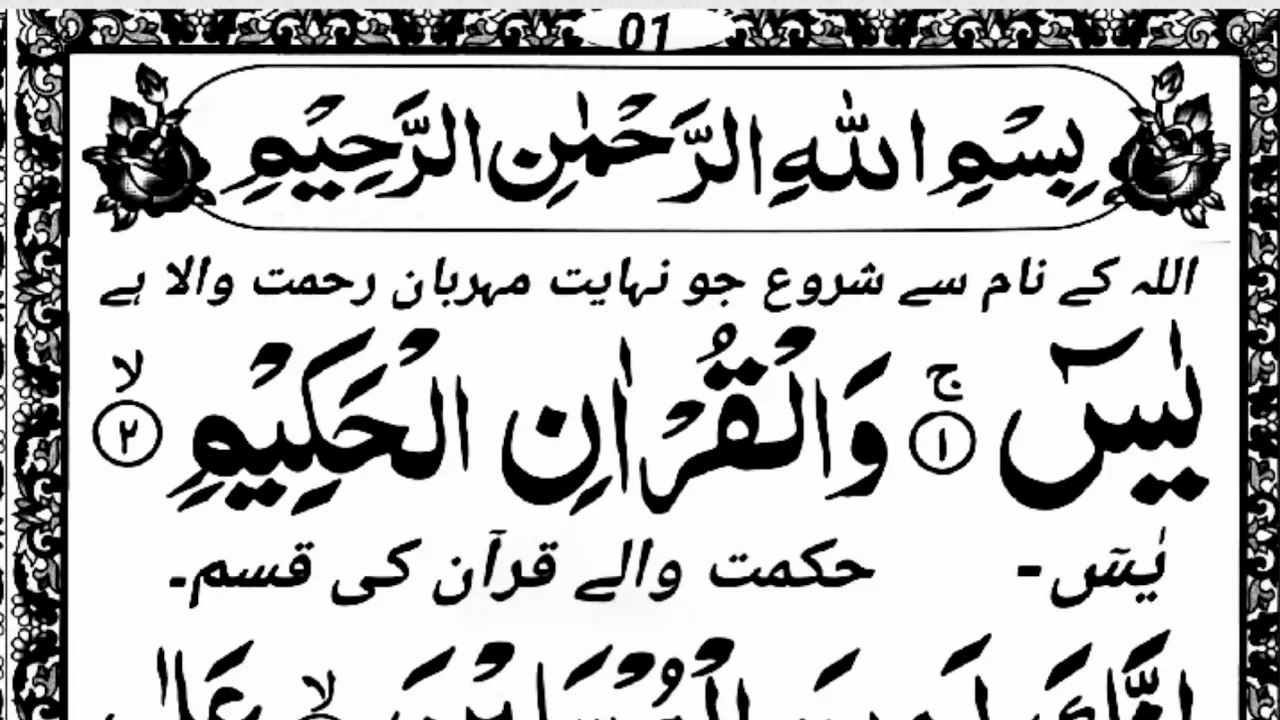 01
بِسْمِ اللّٰهِ الرَّحْمٰنِ الرَّحِيْمِ
اللہ کے نام سے شروع جو نہایت مہربان رحمت والا ہے
يٰسٓ ۚ ﴿١﴾ وَالْقُرْاٰنِ الْحَكِيْمِ ۙ ﴿٢﴾
یٰسٓ ۔ حکمت والے قرآن کی قسم۔
اِنَّكَ لَمِنَ الْمُرْسَلِيْنَ ۙ عَلٰى